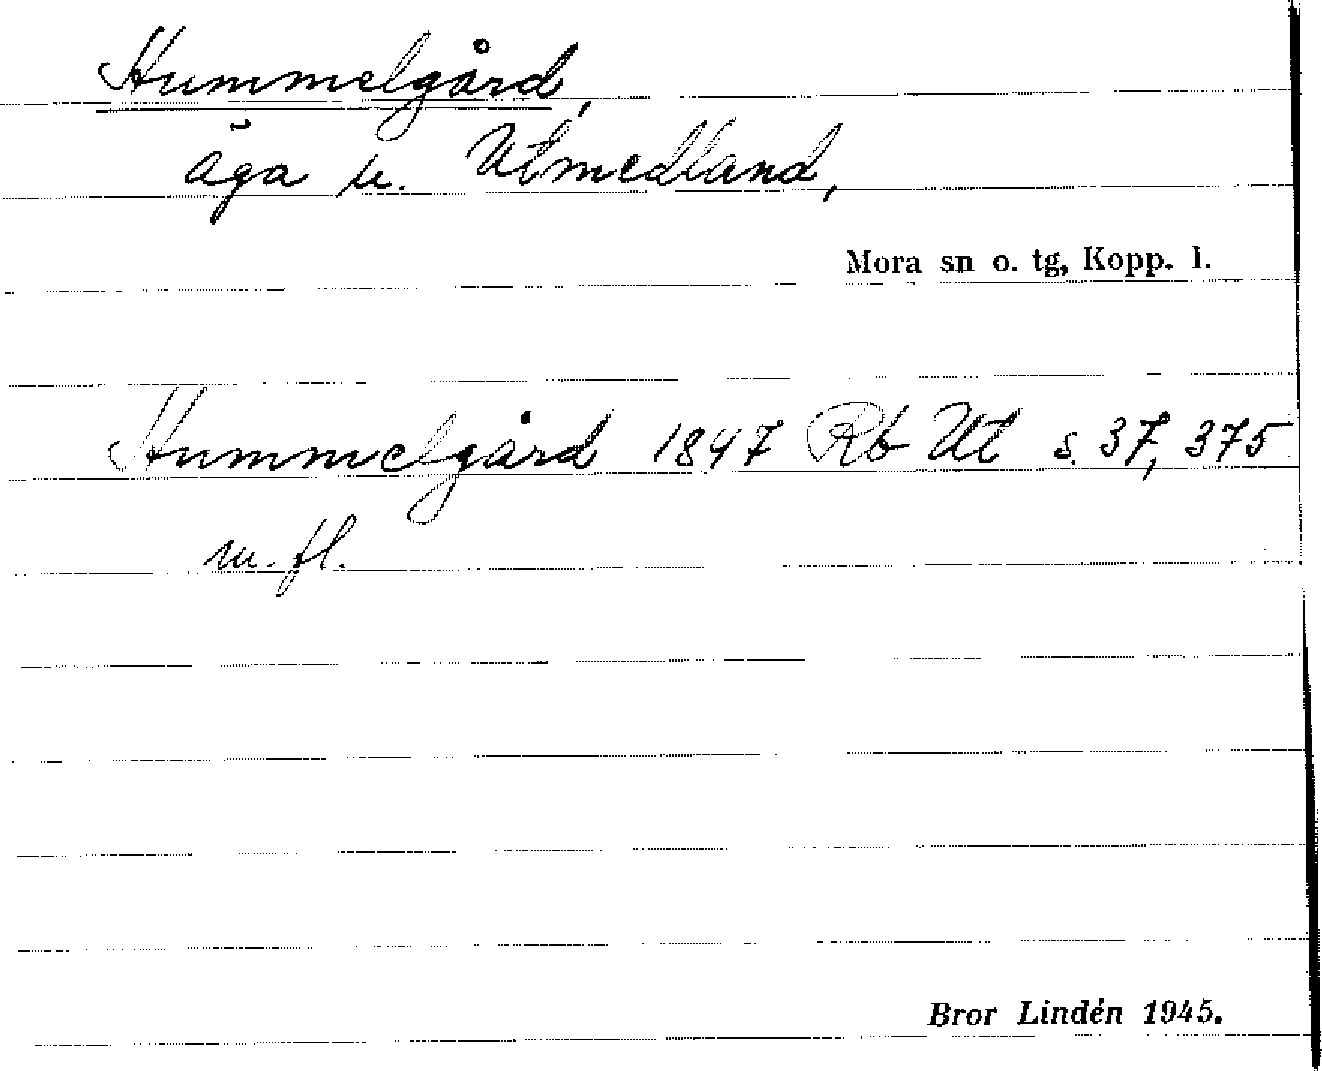 Hummelgård,
äga u. Utmedland,
Mora sn o. tg, Kopp. l.
Hummelgård 1847 Rb Ut s. 37, 375
m. fl.
Bror Lindén 1945.